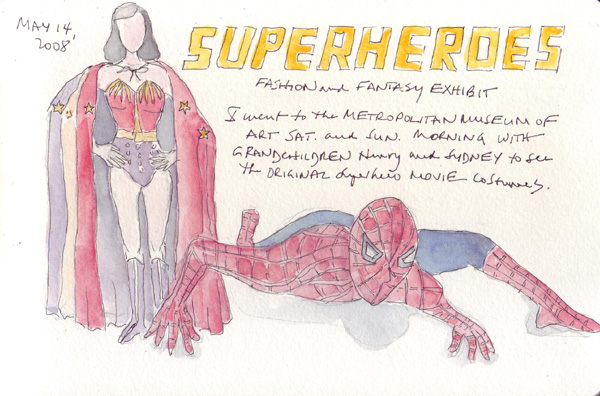 MAY 14,
2008
SUPERHEROES
FASHION and FANTASY EXHIBIT
I went to the METROPOLITAN MUSEUM OF
ART SAT. and SUN. MORNING WITH
GRANDCHILDREN Henry and SYDNEY to see
the ORIGINAL Superhero MOVIE Costumes.